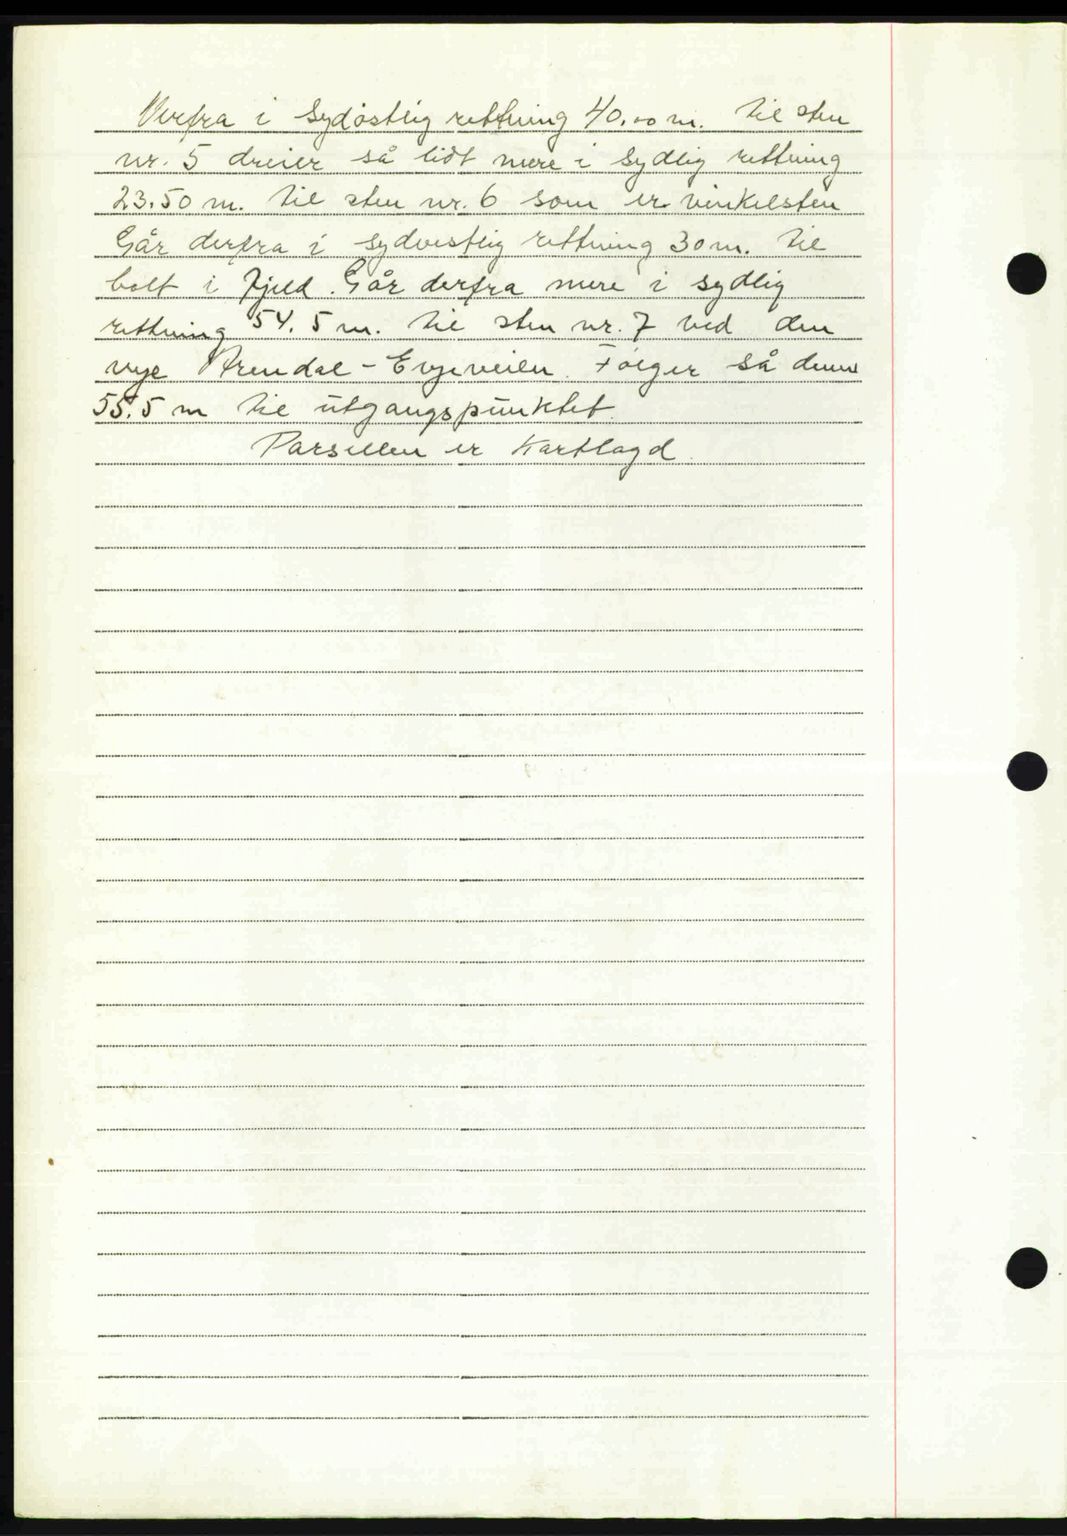 Derfra i Sydøstlig rettning 40.00 m. til sten
nr. 5 dreier så lidt mere i Sydlig rettning
23.50 m. til sten nr. 6 som er vinkelsten
Går derfra i sydvestlig rettning 30 m. til
bolt i fjeld. Går derfra mere i sydlig
rettning 54.5 m. til sten nr. 7 ved den
nye Arendal - Evjeveien. Følger så denne
55.5 m til utgangspunktet.
Parsellen er Kartlagd.